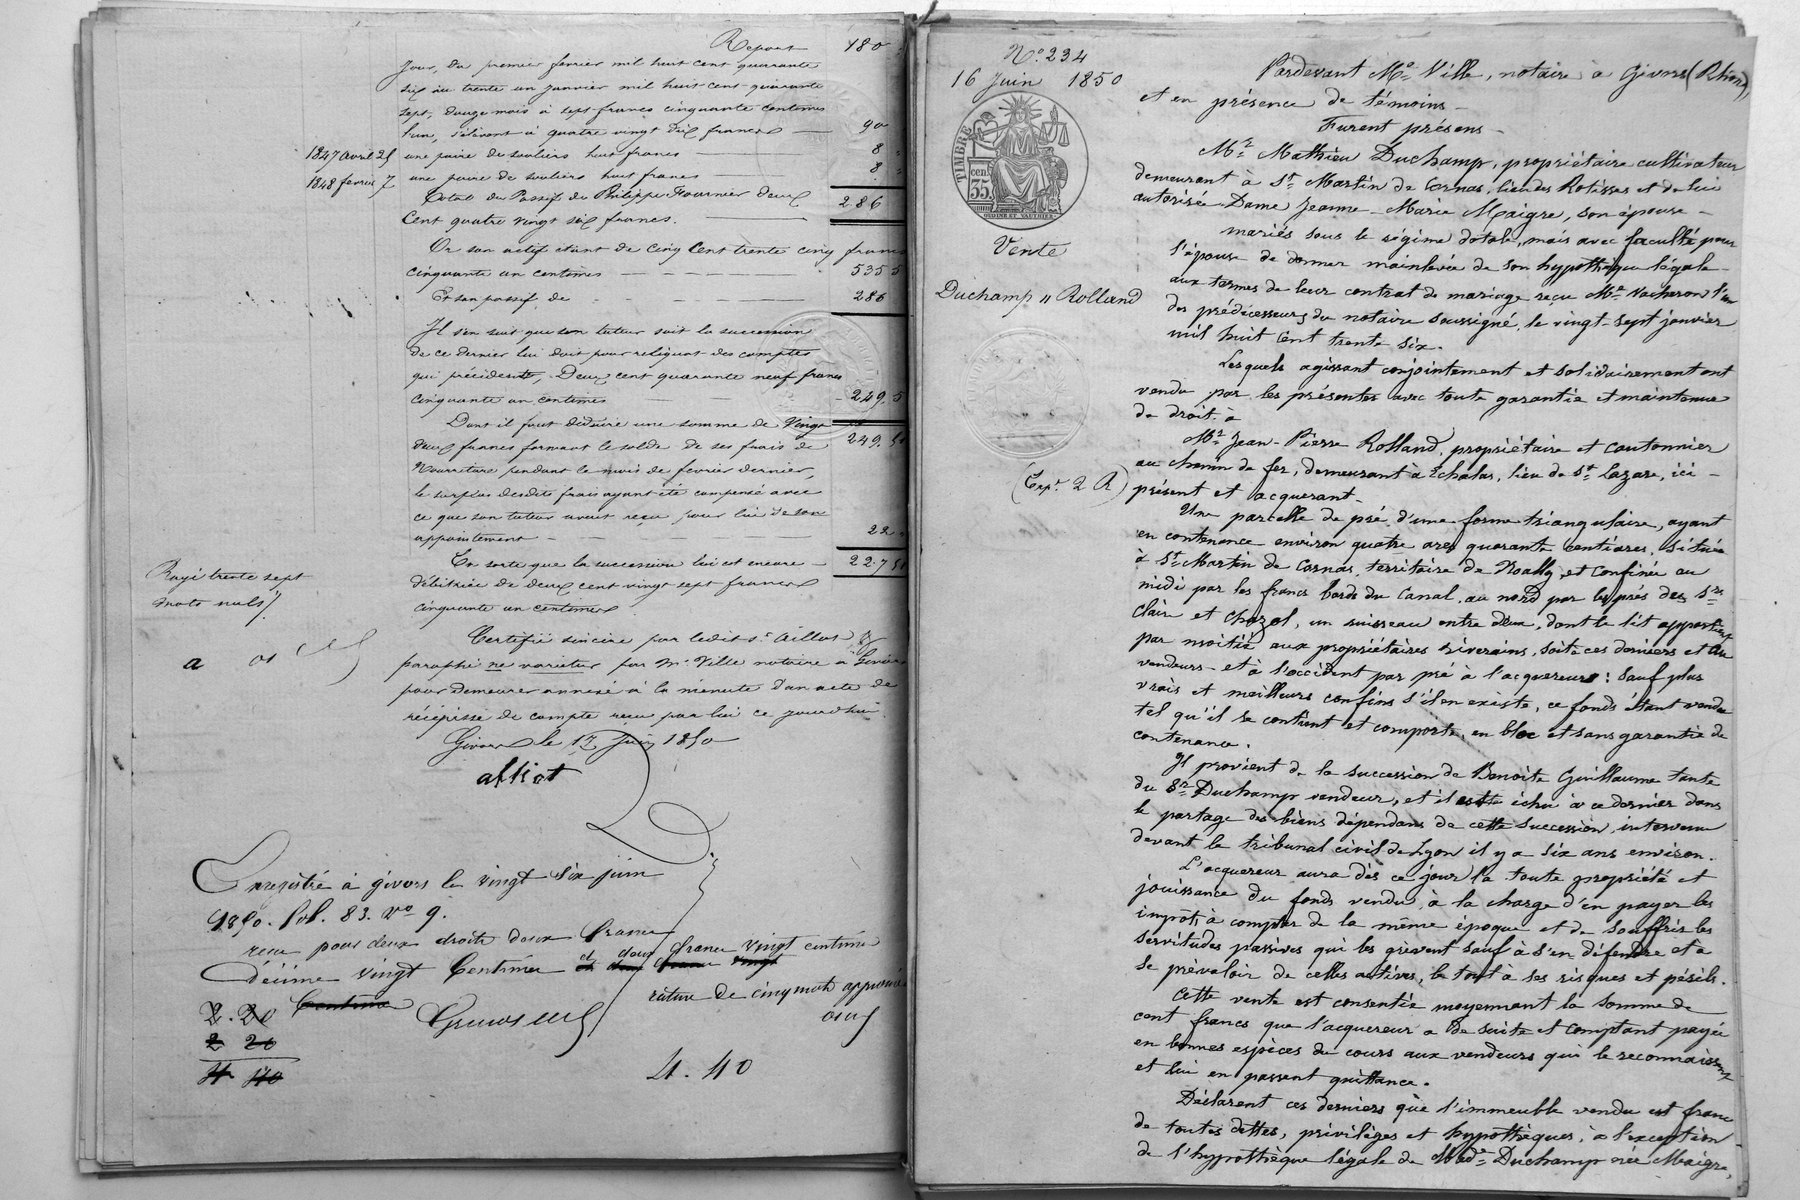 Report 180
Jour, du premier fevrier mil huit cent quarante
six au trente un janvier mil huit cent quarante
sept, douze mois à sept francs cinquante centimes
l'un, s'élevent à quatre vingt dix francs 90
1847 avril 25 une paire de souliers huit francs 8
1848 fevrier 7 une paire de souliers huit francs 8
Total du Passif de Philippe Fournier deux 286
Cent quatre vingt six francs.
Or son actif étant de cinq Cent trente cinq francs
cinquante un centimes 535 5
Et son passif de 286
Il s'en suit que son tuteur soit la succession
de ce dernier lui doit pour reliquat des comptes
qui précédents, Deux cent quarante neuf francs
cinquante un centimes 249. 5
Dont il faut déduire une somme de Vingt
deux francs formant le solde de ses frais de 249. 51
Nourriture pendant le mois de février dernier,
le surplus desdits frais ayant été compensé avec
ce que son tuteur avait reçu pour lui de son
appointement 22
En sorte que la succession lui est encore 227 51
débitrice de deux cent vingt sept francs
cinquante un centimes
Rayé trente sept
mots nuls
Certifié sincère par ledit Sr
paraphé ne varietur par Me Ville notaire à Givors
pour demeurer annexé à la minute d'un acte de
récépissé de compte reçu par lui ce jourd'hui
Givors le 17 Juin 1850
Enregistré à givors le vingt six juin
1850. fol. 83. Vo 9.
reçu pour deux droits deux francs
décime vingt Centimes deux francs vingt centimes
Centimes
rature de cinq mots approuvé
2. 20
2 20
4 40
4. 40
No. 234
16 Juin 1850
TIMBRE
cen.
35
Vente
Duchamp " Rolland
(Expn. 2 R)
Pardevant Me. Ville, notaire à Givors (Rhône),
et en présence de témoins
Furent présens
Mr. Mathieu Duchamp, propriétaire cultivateur
demeurant à St. Martin de Cornas, lieu des Rotisses et de lui
autorisée Dame Jeanne-Marie Maigre, son épouse
mariés sous le régime dotal, mais avec faculté pour
l'épouse de donner mainlevée de son hypothèque légale
aux termes de leur contrat de mariage reçu Me. Vacheron l'un
des prédécesseurs du notaire soussigné, le vingt-sept janvier
mil huit cent trente six.
Lesquels agissant conjointement et solidairement ont
vendu par les présentes avec toute garantie et maintenue
de droit à
Mr. Jean-Pierre Rolland, propriétaire et cantonnier
au chemin de fer, demeurant à Echalas, lieu de St. Lazare, ici
présent et acquérant
Une parcelle de pré d'une forme triangulaire, ayant
en contenance environ quatre ares quarante centiares, située
à St. Martin de Cornas, territoire de et confinée au
midi par les francs bords du Canal, au nord par les prés des Srs
Clair et Chazot, un ruisseau entre deux, dont le lit appartient
par moitié aux propriétaires riverains, soit à ces derniers et aux
vendeurs et à l'occident par pré à l'acquereur: sauf plus
vrais et meilleurs confins s'il en existe, ce fonds étant vendu
tel qu'il se contient et comporte, en bloc et sans garantie de
contenance.
Il provient de la succession de Benoite Guillaume tante
du Sr. Duchamp vendeur, et il est échu à ce dernier dans
le partage des biens dépendans de cette succession, intervenu
devant le tribunal civil de Lyon il y a six ans environ.
L'acquereur aura dès ce jour la toute propriété et
jouissance du fonds vendu, à la charge d'en payer les
impôts à compter de la même époque et de souffrir les
servitudes passives qui les grèvent sauf à s'en défendre et à
se prévaloir de celles actives, le tout à ses risques et périls.
Cette vente est consentie moyennant la somme de
cent francs que l'acquereur a de suite et comptant payée
en bonnes espèces du cours aux vendeurs qui le reconnaissent
et lui en passent quittance.
Déclarent ces derniers que l'immeuble vendu est franc
de toutes dettes, privilèges et hypothèques, à l'exception
de l'hypothèque légale de Made. Duchamp née Maigre,